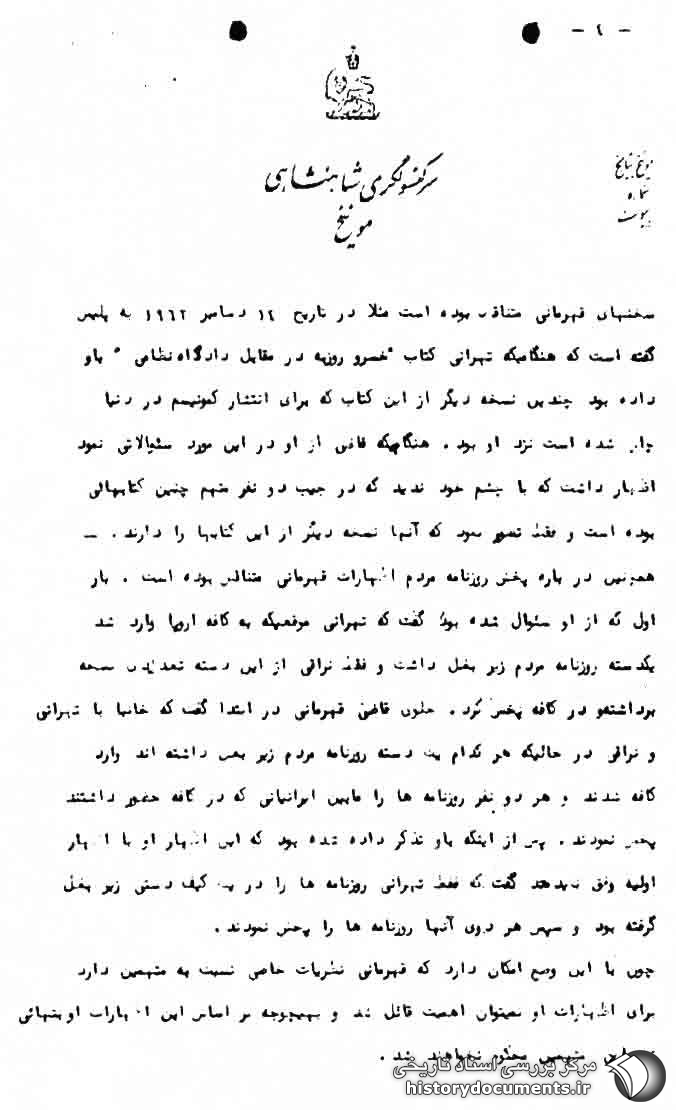 - ٤ -
سرکنسولگری شاهنشاهی
مونیخ
مورخ
شماره
پیوست
سخنهای قهرمانی متناقض بوده است مثلا در تاریخ ١٤ دسامبر ١٩٦٢ به پلیس
گفته است که هنگامیکه تهرانی کتاب "خسرو روزبه در مقابل دادگاه نظامی" باو
داده بود چندین نسخه دیگر از این کتاب که برای انتشار کمونیسم در دنیا
چاپ شده است نزد او بود . هنگامیکه قاضی از او در این مورد سئوالاتی نمود
اظهار داشت که با چشم خود ندید که در جیب دو نفر متهم چنین کتابهائی
بوده است و فقط تصور نمود که آنها نسخه دیگر از این کتابها را دارند . -
همچنین در باره پخش روزنامه مردم اظهارات قهرمانی متناقض بوده است . بار
اول که از او سئوال شده بود گفت که تهرانی موقعیکه به کافه اروپا وارد شد
یکدسته روزنامه مردم زیر بغل داشت و فقط نراقی از این دسته تعدادی نسخه
برداشته و در کافه پخش کرد . جلوی قاضی قهرمانی در ابتدا گفت که خانبا با تهرانی
و نراقی در حالیکه هر کدام یک دسته روزنامه مردم زیر بغل داشته اند وارد
کافه شدند و هر دو نفر روزنامه ها را مابین ایرانیانی که در کافه حضور داشتند
پخش نمودند . پس از اینکه باو تذکر داده شده بود که این اظهار او با اظهار
اولیه وفق نمیدهد گفت که فقط تهرانی روزنامه ها را در یک کیف دستی زیر بغل
گرفته بود و سپس هر دوی آنها روزنامه ها را پخش نمودند .
چون با این وضع امکان دارد که قهرمانی نظریات خاصی نسبت به متهمین دارد
برای اظهارات او نمیتوان اهمیت قائل شد و بهیچوجه بر اساس این اظهارات او بتنهائی
متهمین محکوم نخواهند شد .
مرکز بررسی اسناد تاریخی
historydocuments.ir